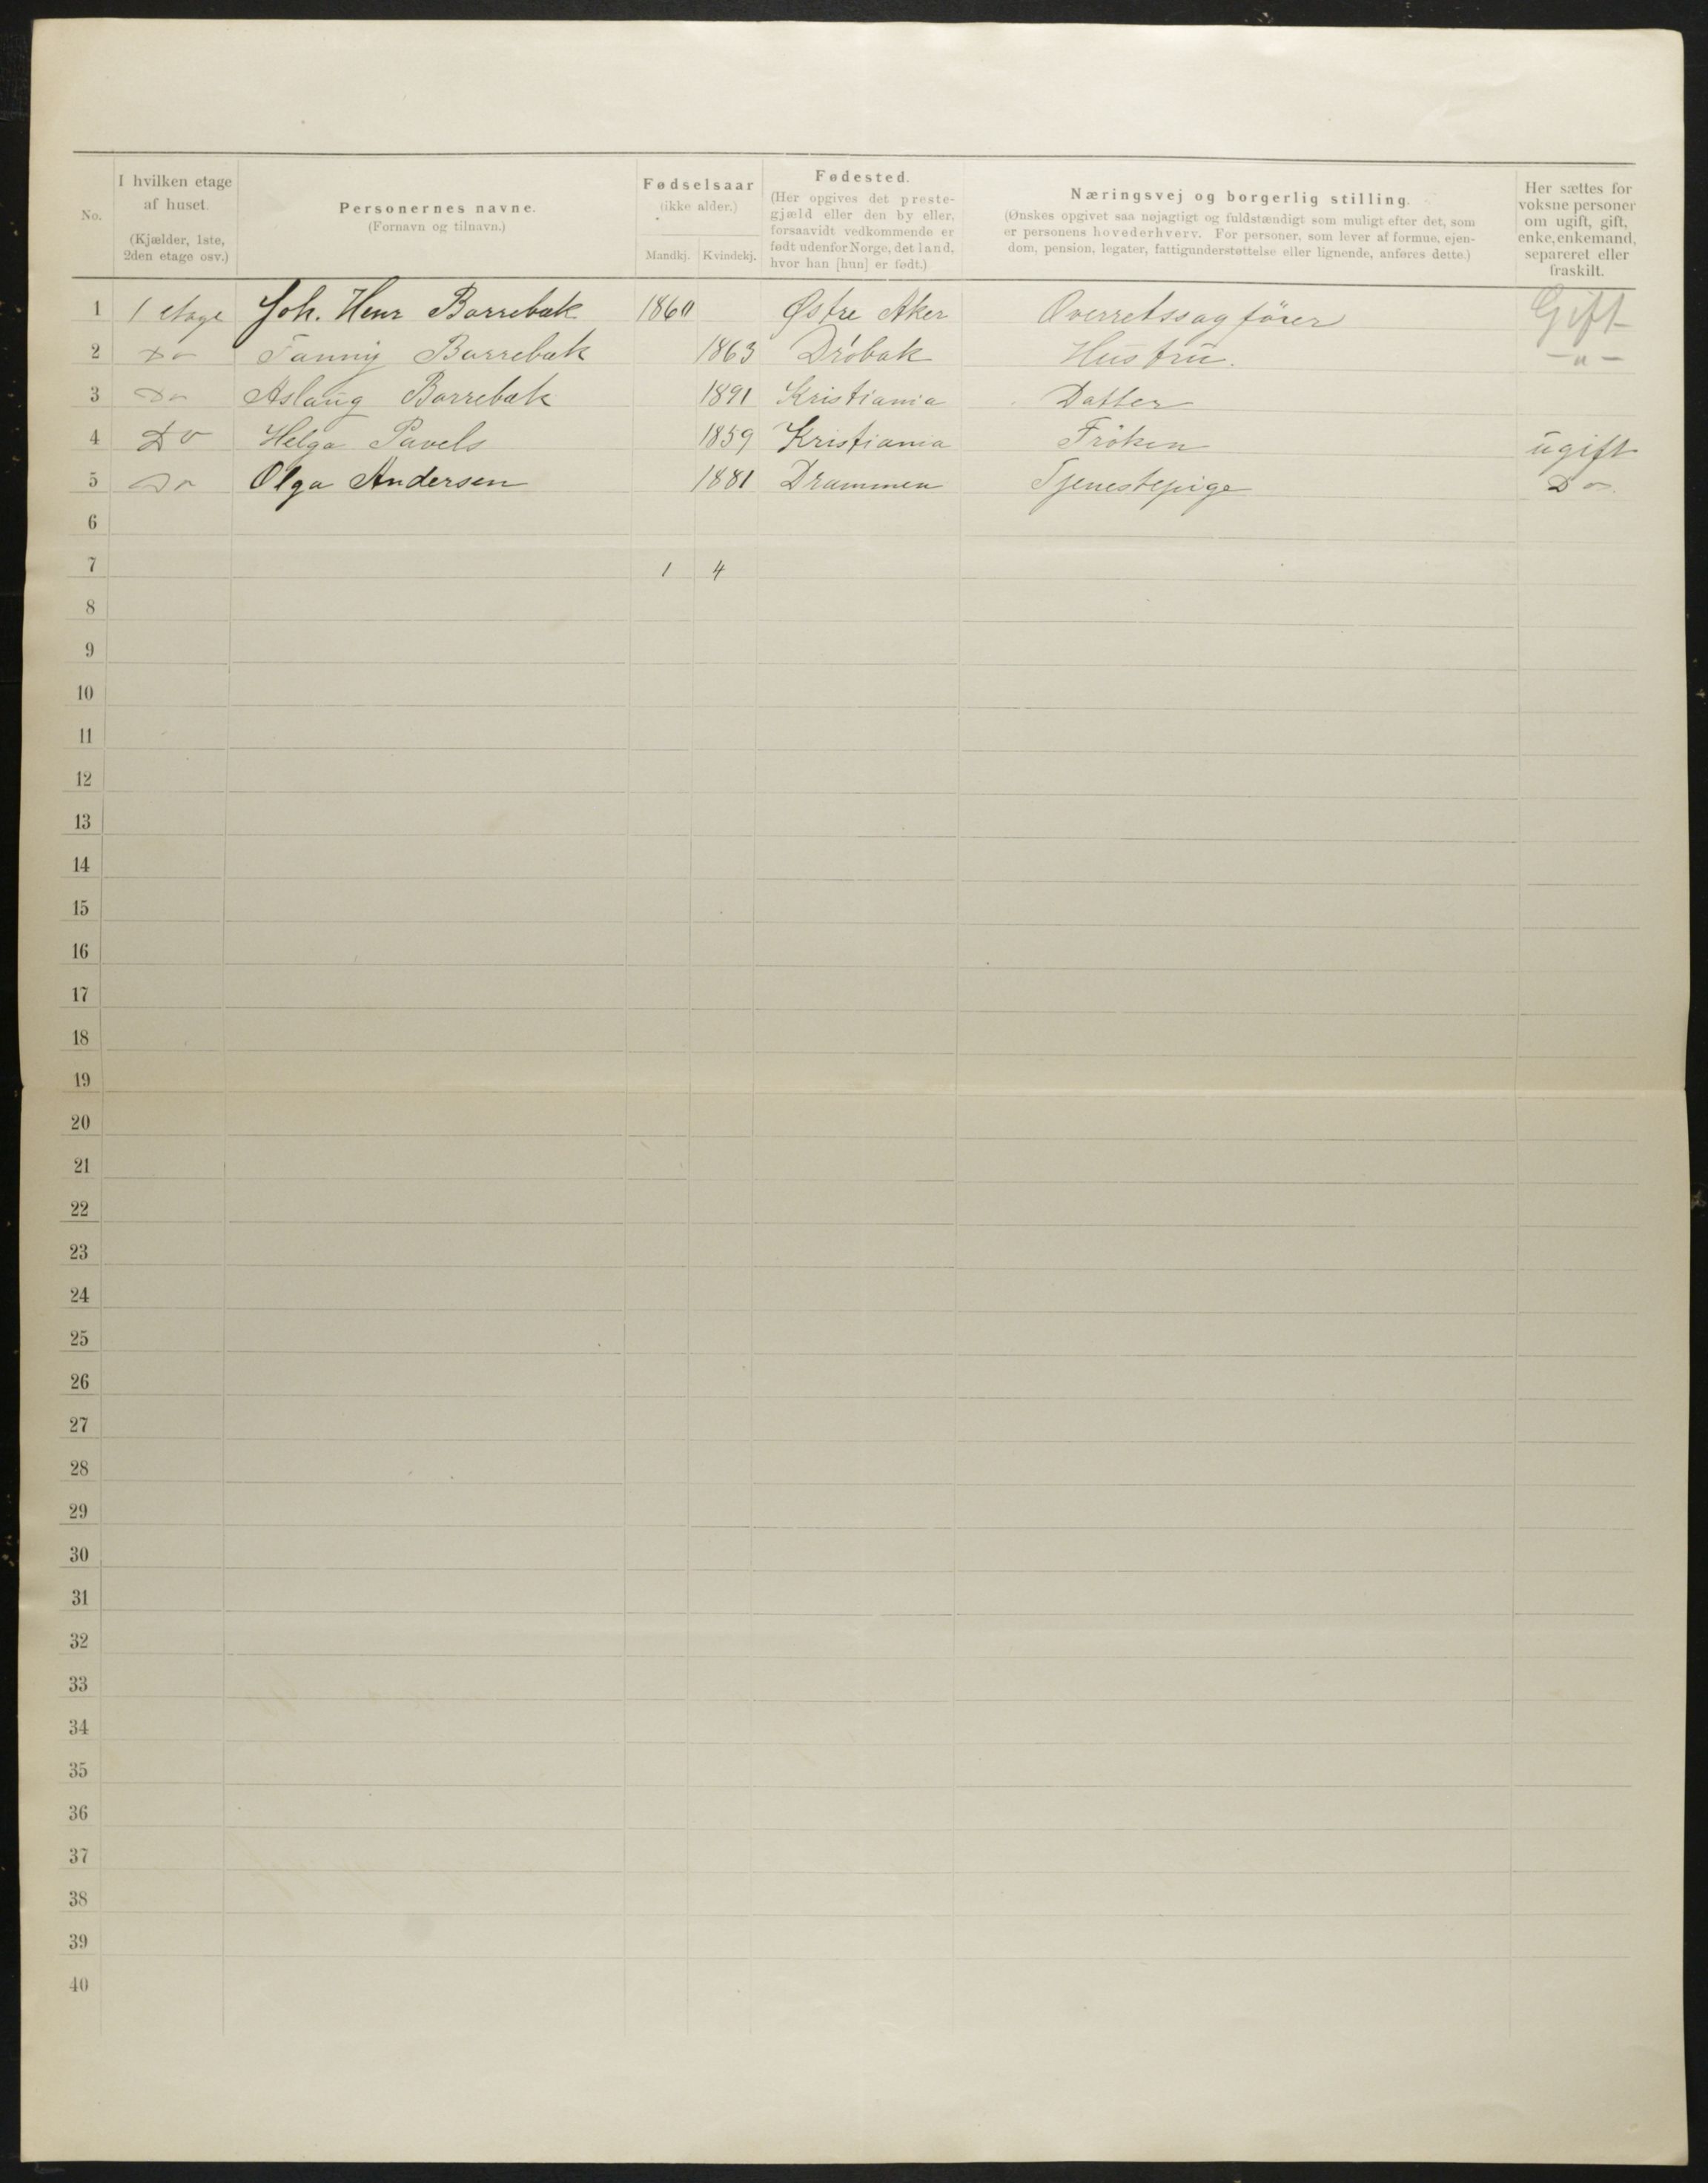 No.
I hvilken etage af huset. (Kjælder, 1ste, 2den etage osv.)
Personernes navne. (Fornavn og tilnavn.)
Fødselsaar (ikke alder.)
Mandkj. Kvindekj.
Fødested. (Her opgives det prestegjæld eller den by eller, forsaavidt vedkommende er født udenfor Norge, det land, hvor han [hun] er født.)
Næringsvej og borgerlig stilling.
(Ønskes opgivet saa nøjagtigt og fuldstændigt som muligt efter det, som
er personens hovederhverv. For personer, som lever af formue, ejen-
dom, pension, legater, fattigunderstøttelse eller lignende, anføres dette.)
Her sættes for voksne personer om ugift, gift, enke, enkemand, separeret eller fraskilt.
1 1 etage Joh. Henr Barrebæk 1860 Østre Aker Overretssagfører Gift
2 Do Fanny Barrebæk 1863 Drøbak Hustru. -"-
3 Do Aslaug Barrebæk 1891 Kristiania Datter
4 Do Helga Pavels 1859 Kristiania Frøken ugift
5 Do Olga Andersen 1881 Drammen Tjenestepige Do
6
7 1 4
8
9
10
11
12
13
14
15
16
17
18
19
20
21
22
23
24
25
26
27
28
29
30
31
32
33
34
35
36
37
38
39
40